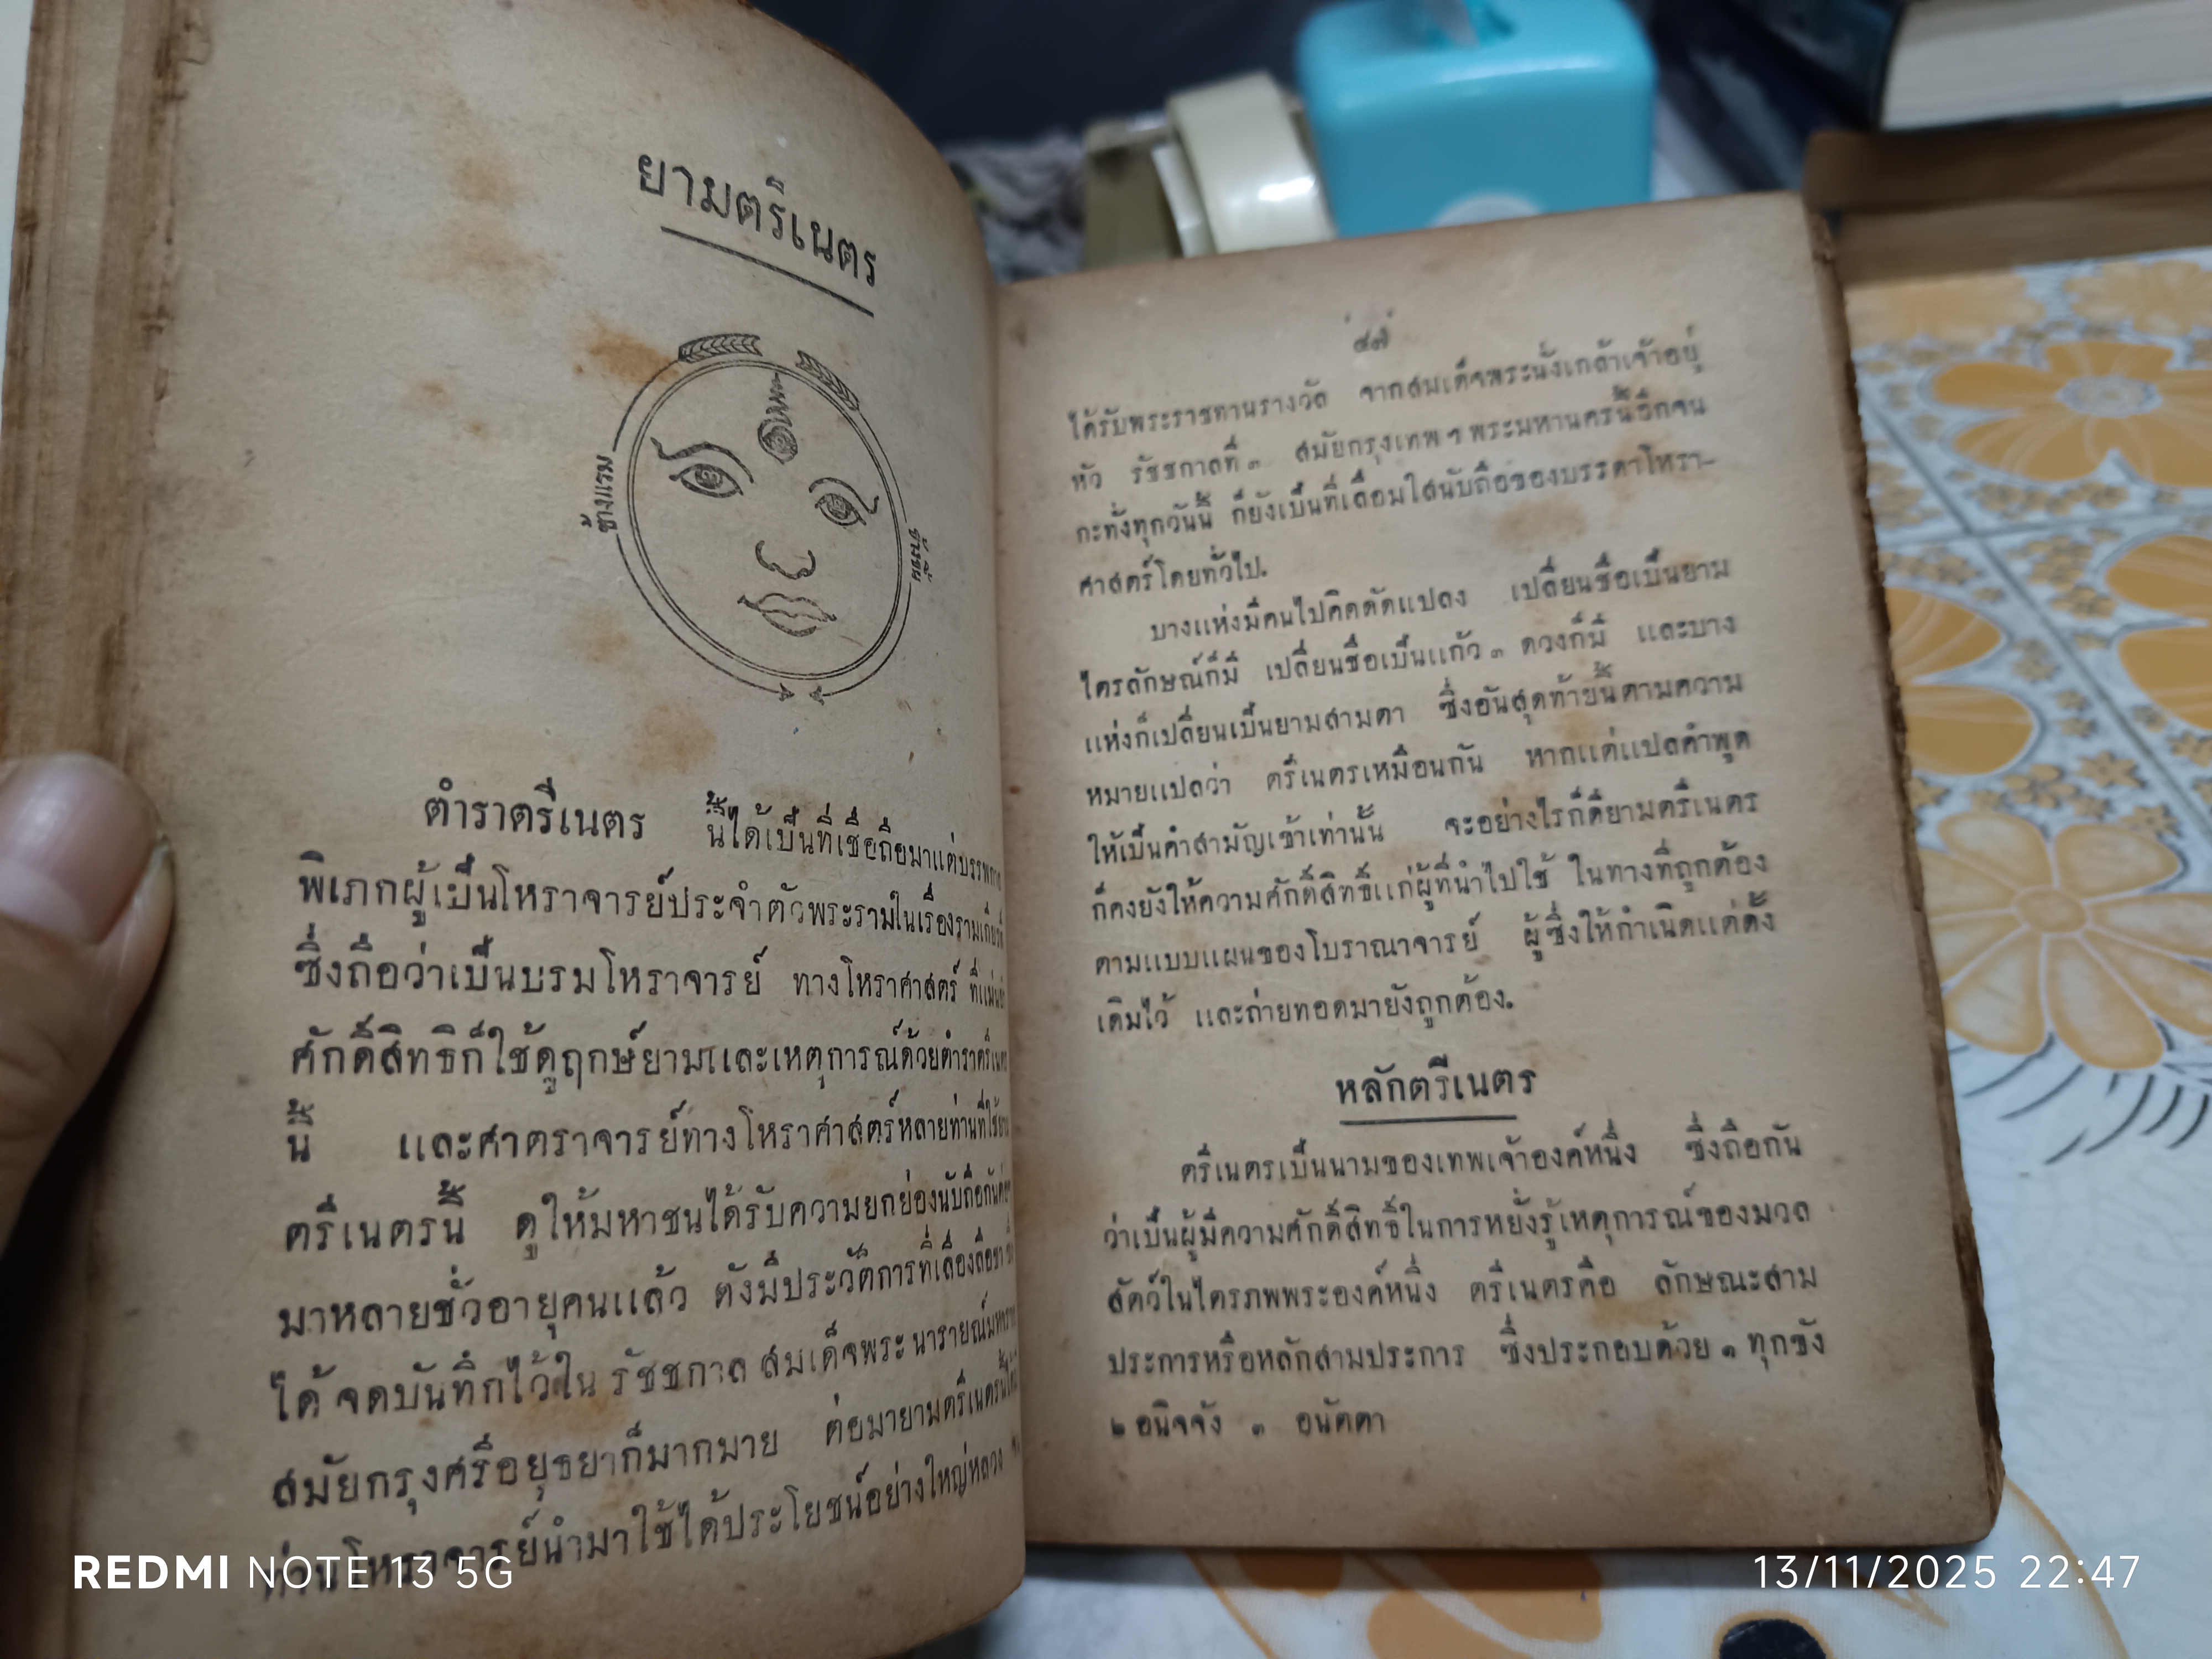 ยามตรีเนตร
ข้างแรม
ข้างขึ้น
ตำราตรีเนตร นี้ได้เป็นที่เชื่อถือมาแต่บรรพกาล
พิเภกผู้เป็นโหราจารย์ประจำตัวพระรามในเรื่องรามเกียรติ์
ซึ่งถือว่าเป็นบรมโหราจารย์ ทางโหราศาสตร์ ที่แม่นยำ
ศักดิ์สิทธิก็ใช้ดูฤกษ์ยามและเหตุการณ์ด้วยตำราตรีเนตร
นี้ และศาตราจารย์ทางโหราศาสตร์หลายท่านที่ใช้ยาม
ตรีเนตรนี้ ดูให้มหาชนได้รับความยกย่องนับถือกัน
มาหลายชั่วอายุคนแล้ว ดังมีประวัติการที่เลื่องลือ
ได้จดบันทึกไว้ใน รัชชกาล สมเด็จพระนารายณ์มหาราช
สมัยกรุงศรีอยุธยาก็มากมาย ต่อมายามตรีเนตรนี้ได้
โหราจารย์นำมาใช้ได้ประโยชน์อย่างใหญ่หลวง
๔๗
ได้รับพระราชทานรางวัล จากสมเด็จพระนั่งเกล้าเจ้าอยู่
หัว รัชชกาลที่ ๓ สมัยกรุงเทพ ฯ พระมหานครนี้อีกจน
กะทั่งทุกวันนี้ ก็ยังเป็นที่เลื่อมใสนับถือของบรรดาโหรา-
ศาสตร์โดยทั่วไป.
บางแห่งมีคนไปคิดดัดแปลง เปลี่ยนชื่อเป็นยาม
ไตรลักษณ์ก็มี เปลี่ยนชื่อเป็นแก้ว ๓ ดวงก็มี และบาง
แห่งก็เปลี่ยนเป็นยามสามตา ซึ่งอันสุดท้ายนี้ตามความ
หมายแปลว่า ตรีเนตรเหมือนกัน หากแต่แปลคำพูด
ให้เป็นคำสามัญเข้าเท่านั้น จะอย่างไรก็ดียามตรีเนตร
ก็คงยังให้ความศักดิ์สิทธิ์แก่ผู้ที่นำไปใช้ ในทางที่ถูกต้อง
ตามแบบแผนของโบราณาจารย์ ผู้ซึ่งให้กำเนิดแต่ดั้ง
เดิมไว้ และถ่ายทอดมายังถูกต้อง.
หลักตรีเนตร
ตรีเนตรเป็นนามของเทพเจ้าองค์หนึ่ง ซึ่งถือกัน
ว่าเป็นผู้มีความศักดิ์สิทธิ์ในการหยั่งรู้เหตุการณ์ของมวล
สัตว์ในไตรภพพระองค์หนึ่ง ตรีเนตรคือ ลักษณะสาม
ประการหรือหลักสามประการ ซึ่งประกอบด้วย ๑ ทุกขัง
๒ อนิจจัง ๓ อนัตตา
REDMI NOTE 13 5G
13/11/2025 22:47